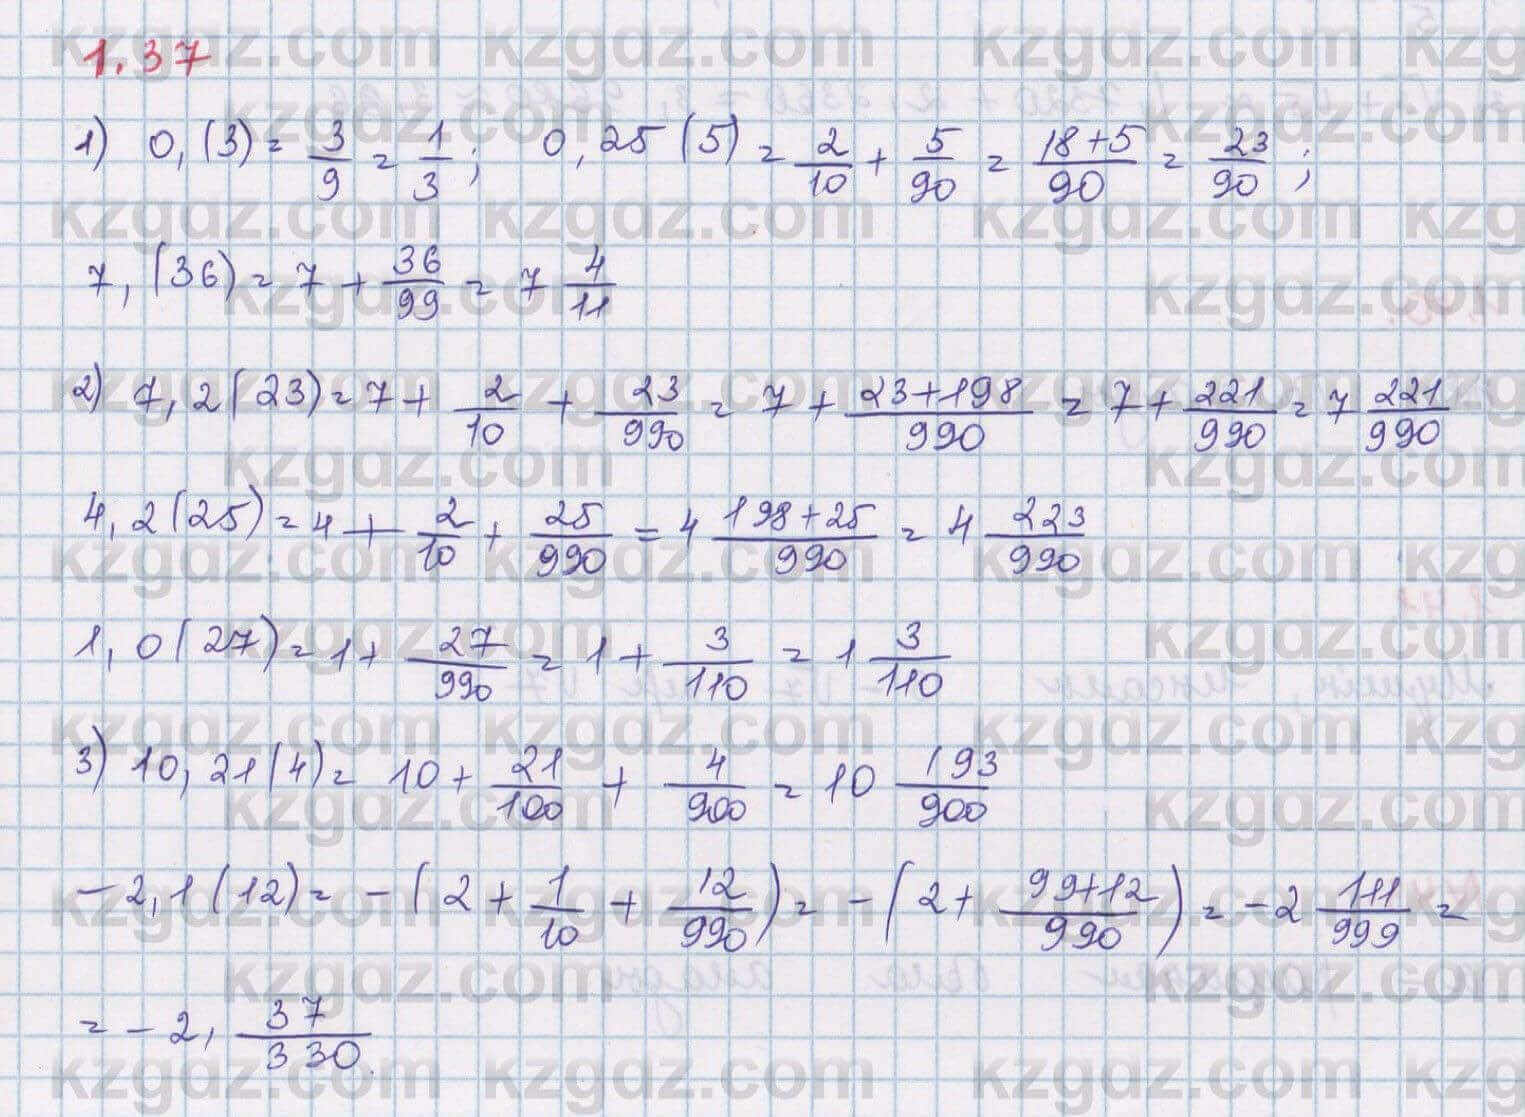 1.37
1) 0,(3) = 3/9 = 1/3; 0,25(5) = 2/10 + 5/90 = (18+5)/90 = 23/90;
7,(36) = 7 + 36/99 = 7 4/11
2) 7,2(23) = 7 + 2/10 + 23/990 = 7 + (23+198)/990 = 7 + 221/990 = 7 221/990
4,2(25) = 4 + 2/10 + 25/990 = 4 (198+25)/990 = 4 223/990
1,0(27) = 1 + 27/990 = 1 + 3/110 = 1 3/110
3) 10,21(4) = 10 + 21/100 + 4/900 = 10 193/900
-2,1(12) = -(2 + 1/10 + 12/990) = -(2 + (99+12)/990) = -2 111/999 =
= -2, 37/330.
kzgdz.com